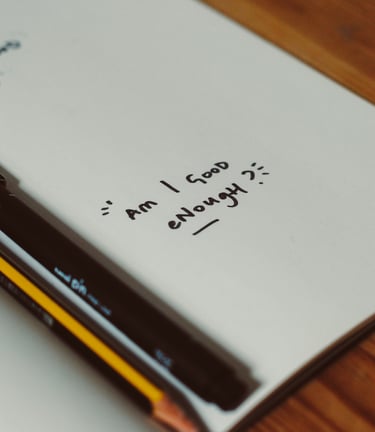 Am I Good
eNougH?